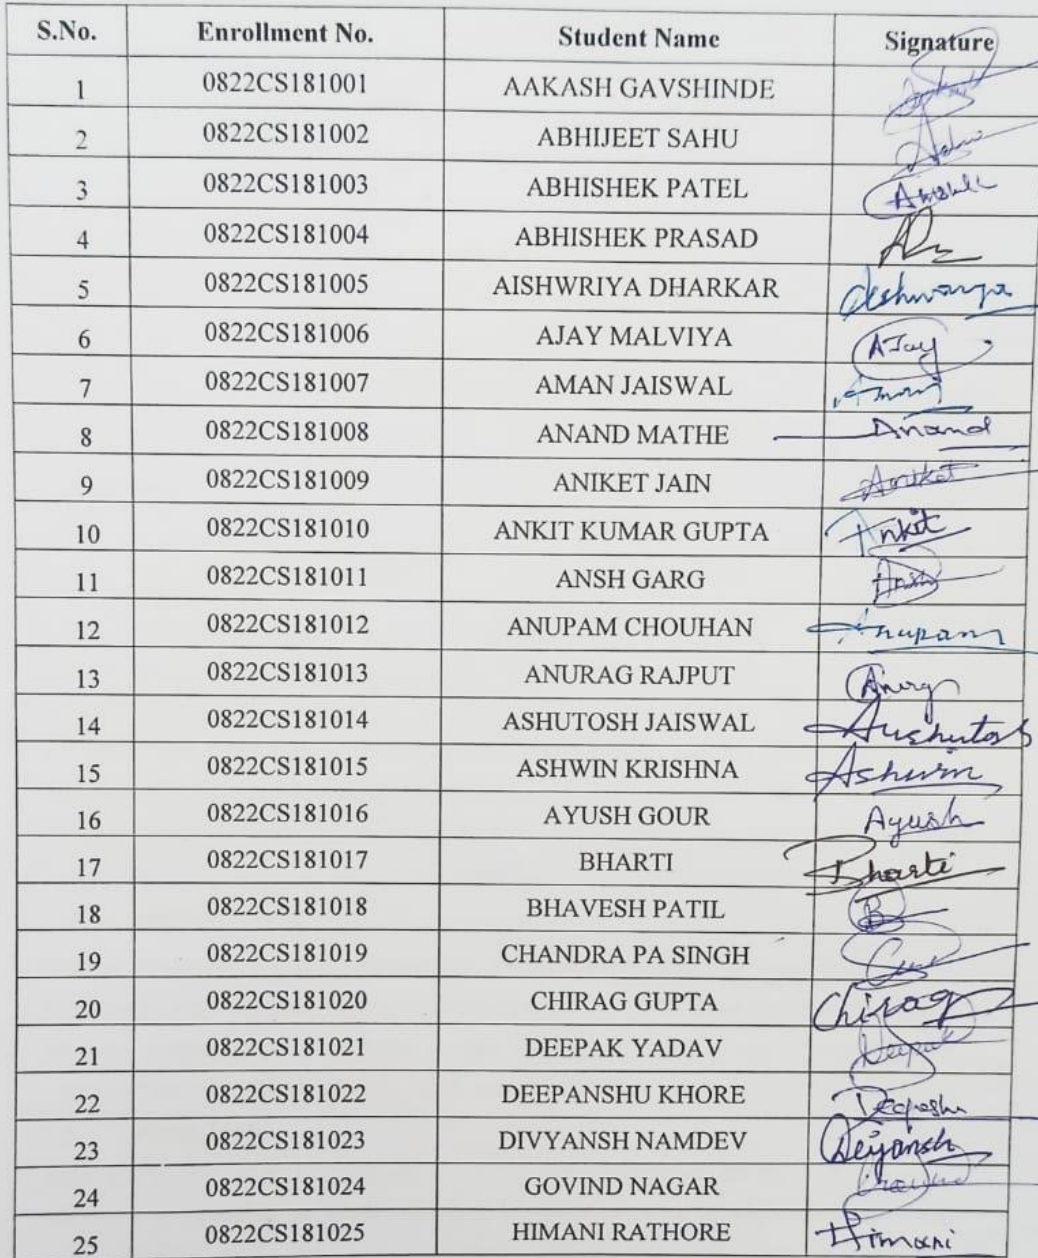 S.No. Enrollment No. Student Name Signature
1 0822CS181001 AAKASH GAVSHINDE
2 0822CS181002 ABHIJEET SAHU
3 0822CS181003 ABHISHEK PATEL
4 0822CS181004 ABHISHEK PRASAD
5 0822CS181005 AISHWRIYA DHARKAR
6 0822CS181006 AJAY MALVIYA AJay
7 0822CS181007 AMAN JAISWAL
8 0822CS181008 ANAND MATHE Anand
9 0822CS181009 ANIKET JAIN Aniket
10 0822CS181010 ANKIT KUMAR GUPTA Ankit
11 0822CS181011 ANSH GARG Ansh
12 0822CS181012 ANUPAM CHOUHAN Anupam
13 0822CS181013 ANURAG RAJPUT
14 0822CS181014 ASHUTOSH JAISWAL Aushutosh
15 0822CS181015 ASHWIN KRISHNA Ashwin
16 0822CS181016 AYUSH GOUR Ayush
17 0822CS181017 BHARTI Bharti
18 0822CS181018 BHAVESH PATIL B
19 0822CS181019 CHANDRA PA SINGH
20 0822CS181020 CHIRAG GUPTA Chirag
21 0822CS181021 DEEPAK YADAV Deepak
22 0822CS181022 DEEPANSHU KHORE
23 0822CS181023 DIVYANSH NAMDEV
24 0822CS181024 GOVIND NAGAR
25 0822CS181025 HIMANI RATHORE Himani